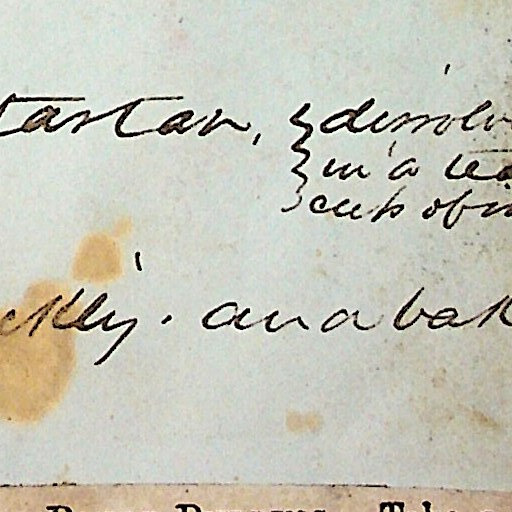 tartar, } dissolv
} in a tea
} cup of m
ckly. and bak